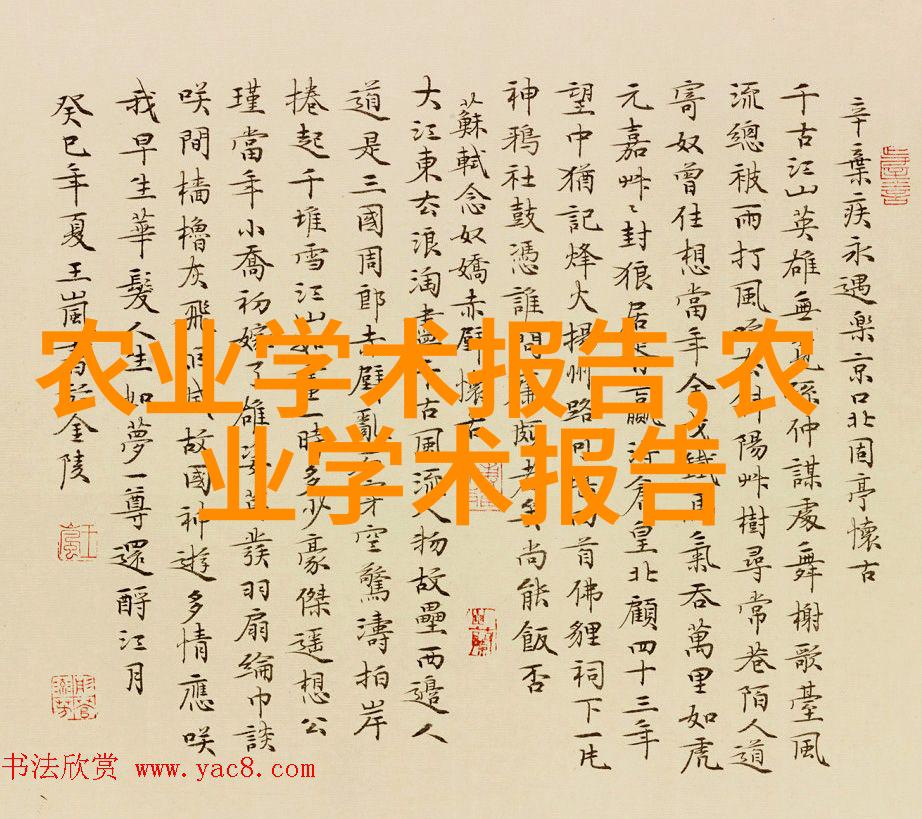 辛棄疾永遇楽京口北固亭懷古
千古江山英雄無覓孫仲謀處舞榭歌臺風
流總被雨打風斜陽艸樹尋常巷陌人道
寄奴曾住想當年金戈鐵馬氣吞萬里如虎
元嘉艸〻封狼居胥贏得倉皇北顧四十三年
望中猶記烽火揚州路可堪回首佛貍祠下一片
神鴉社鼓憑誰問廉頗老矣尚能飯否
蘇軾念奴嬌赤壁懷古
大江東去浪淘盡千古風流人物故壘西邊人
道是三國周郎赤壁亂石穿空驚濤拍岸
捲起千堆雪江山如畫一時多少豪傑遥想公
瑾當年小喬初嫁了雄姿英發羽扇綸巾談
咲間檣櫓灰飛煙滅故國神遊多情應咲
我早生華髮人生如夢一尊還酹江月
癸巳年夏王嵐書於金陵
农业学术报告,农
业学术报告
书法欣赏 www.yac8.com